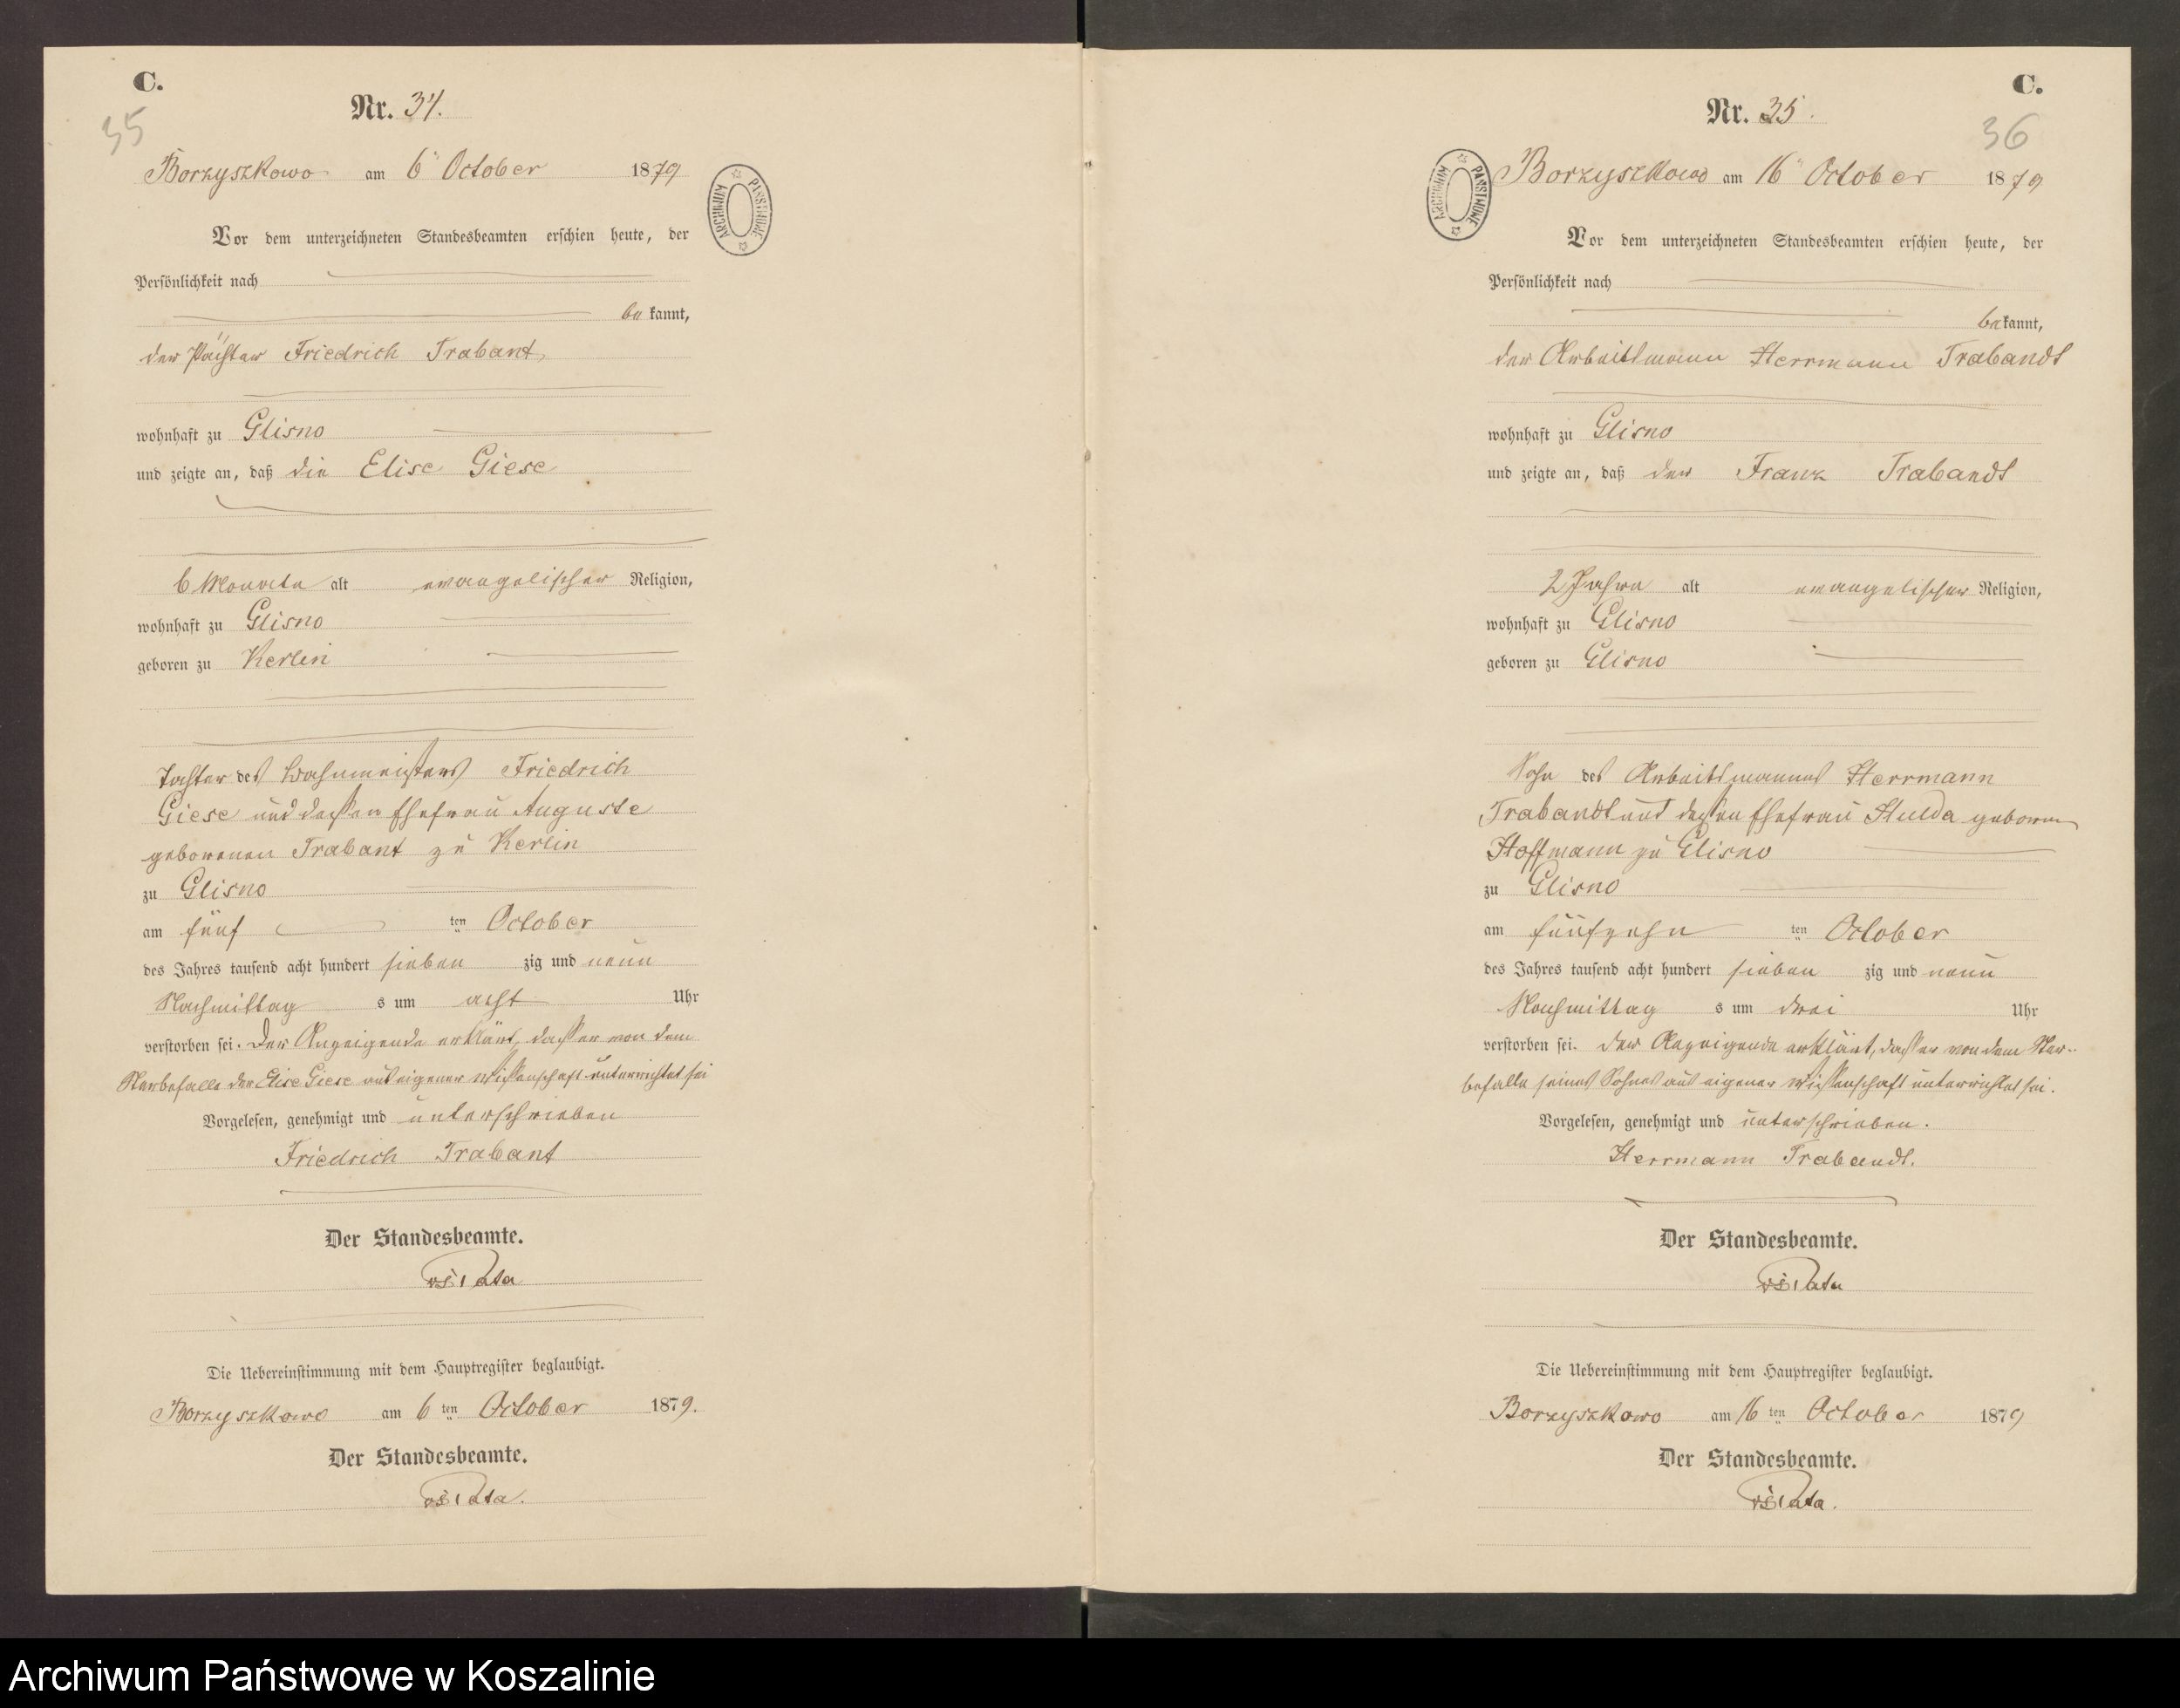 C.
35
Nr. 34.
Borzyszkowo am 6ⁿ October 1879
ARCHIWUM PAŃSTWOWE
Vor dem unterzeichneten Standesbeamten erschien heute, der
Persönlichkeit nach
bekannt,
der Pächter Friedrich Trabant,
wohnhaft zu Glisno
und zeigte an, daß die Elise Giese
6 Monate alt evangelischer Religion,
wohnhaft zu Glisno
geboren zu Kerlin
Tochter des Friedrich
Giese und dessen Ehefrau Auguste
geborenen Trabant zu Kerlin
zu Glisno
am fünf ten October
des Jahres tausend acht hundert sieben zig und neun
Nachmittags um acht Uhr
verstorben sei. Der Anzeigende erklärt, dass er von dem
Sterbefalle der Elise Giese aus eigener Wissenschaft unterrichtet sei
Vorgelesen, genehmigt und unterschrieben
Friedrich Trabant
Der Standesbeamte.
Die Uebereinstimmung mit dem Hauptregister beglaubigt.
Borzyszkowo am 6 ten October 1879.
Der Standesbeamte.
C.
36
Nr. 35.
Borzyszkowo am 16ⁿ October 1879
ARCHIWUM PAŃSTWOWE
Vor dem unterzeichneten Standesbeamten erschien heute, der
Persönlichkeit nach
bekannt,
der Arbeitsmann Herrmann Trabandt
wohnhaft zu Glisno
und zeigte an, daß der Franz Trabandt
2 Jahre alt evangelischer Religion,
wohnhaft zu Glisno
geboren zu Glisno
Sohn des Arbeitsmannes Herrmann
Trabandt und dessen Ehefrau Hulda geboren
Hoffmann zu Glisno
zu Glisno
am fünfzehn ten October
des Jahres tausend acht hundert sieben zig und neun
Nachmittags um drei Uhr
verstorben sei. Der Anzeigende erklärt, dass er von dem Ster-
befalle seines Sohnes aus eigener Wissenschaft unterrichtet sei.
Vorgelesen, genehmigt und unterschrieben.
Herrmann Trabandt.
Der Standesbeamte.
Die Uebereinstimmung mit dem Hauptregister beglaubigt.
Borzyszkowo am 16 ten October 1879
Der Standesbeamte.
Archiwum Państwowe w Koszalinie